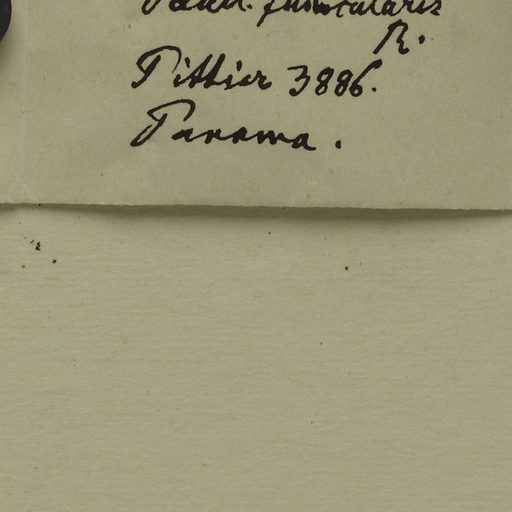 Paull. funicularis
R.
Pittier 3886.
Panama.